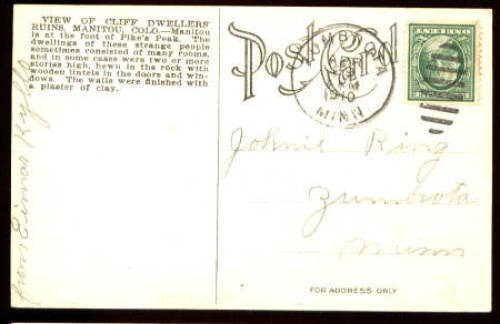 VIEW OF CLIFF DWELLERS'
RUINS, MANITOU, COLO.—Manitou
is at the foot of Pike's Peak. The
dwellings of these strange people
sometimes consisted of many rooms,
and in some cases were two or more
stories high, hewn in the rock with
wooden lintels in the doors and win-
dows. The walls were finished with
a plaster of clay.
Post Card
ZUMBROTA
APR
1910
MINN.
Johnie Ring
Zumbrota
Minn
FOR ADDRESS ONLY
from Einar